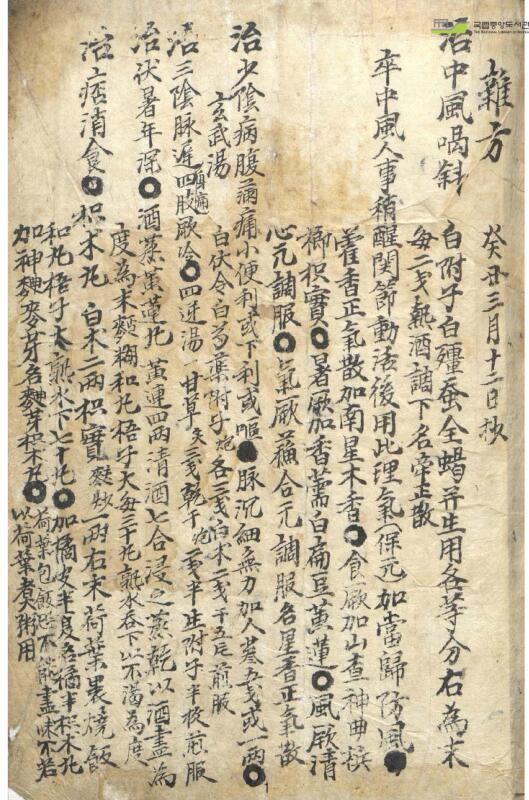 國立中央도서관
THE NATIONAL LIBRARY OF KOREA
雜方 癸丑三月十二日抄
治中風喎斜 白附子白殭蚕全蝎并生用各等分右為末
每二戔熱酒調下名牽正散
卒中風人事稍醒関節動活後用此理氣(保元加當歸防風
藿香正氣散加南星木香 食厥加山査神曲檳
榔枳實 暑厥加香薷白扁豆黃連 風厥清
心元調服 氣厥蘓合元調服名星香正氣散
治少陰病腹痛小便利或下利或嘔 脉沉細無力加人蔘五戔或一兩
玄武湯 白伏令白芍藥附子炮各三戔白朮二戔干五片煎服
治三陰脉遲身痛四肢厥冷 四逆湯 甘草灸三戔乾干炮二戔半生附子半枚煎服
治伏暑年深 酒蒸黃連丸 黃連四兩清酒七合浸之蒸乾以酒盡為
度為末麵糊和丸梧子大每三十丸熟水吞下以不渴為度
治痞消食 枳朮丸 白朮二兩枳實麩炒一兩右末荷葉裹燒飯
和丸梧子大熟水下七十丸 加橘皮半夏名橘半枳朮丸
加神麯麥芽名麯芽枳朮丸 荷葉包飯恐不能盡味不若
以荷葉煮粥用